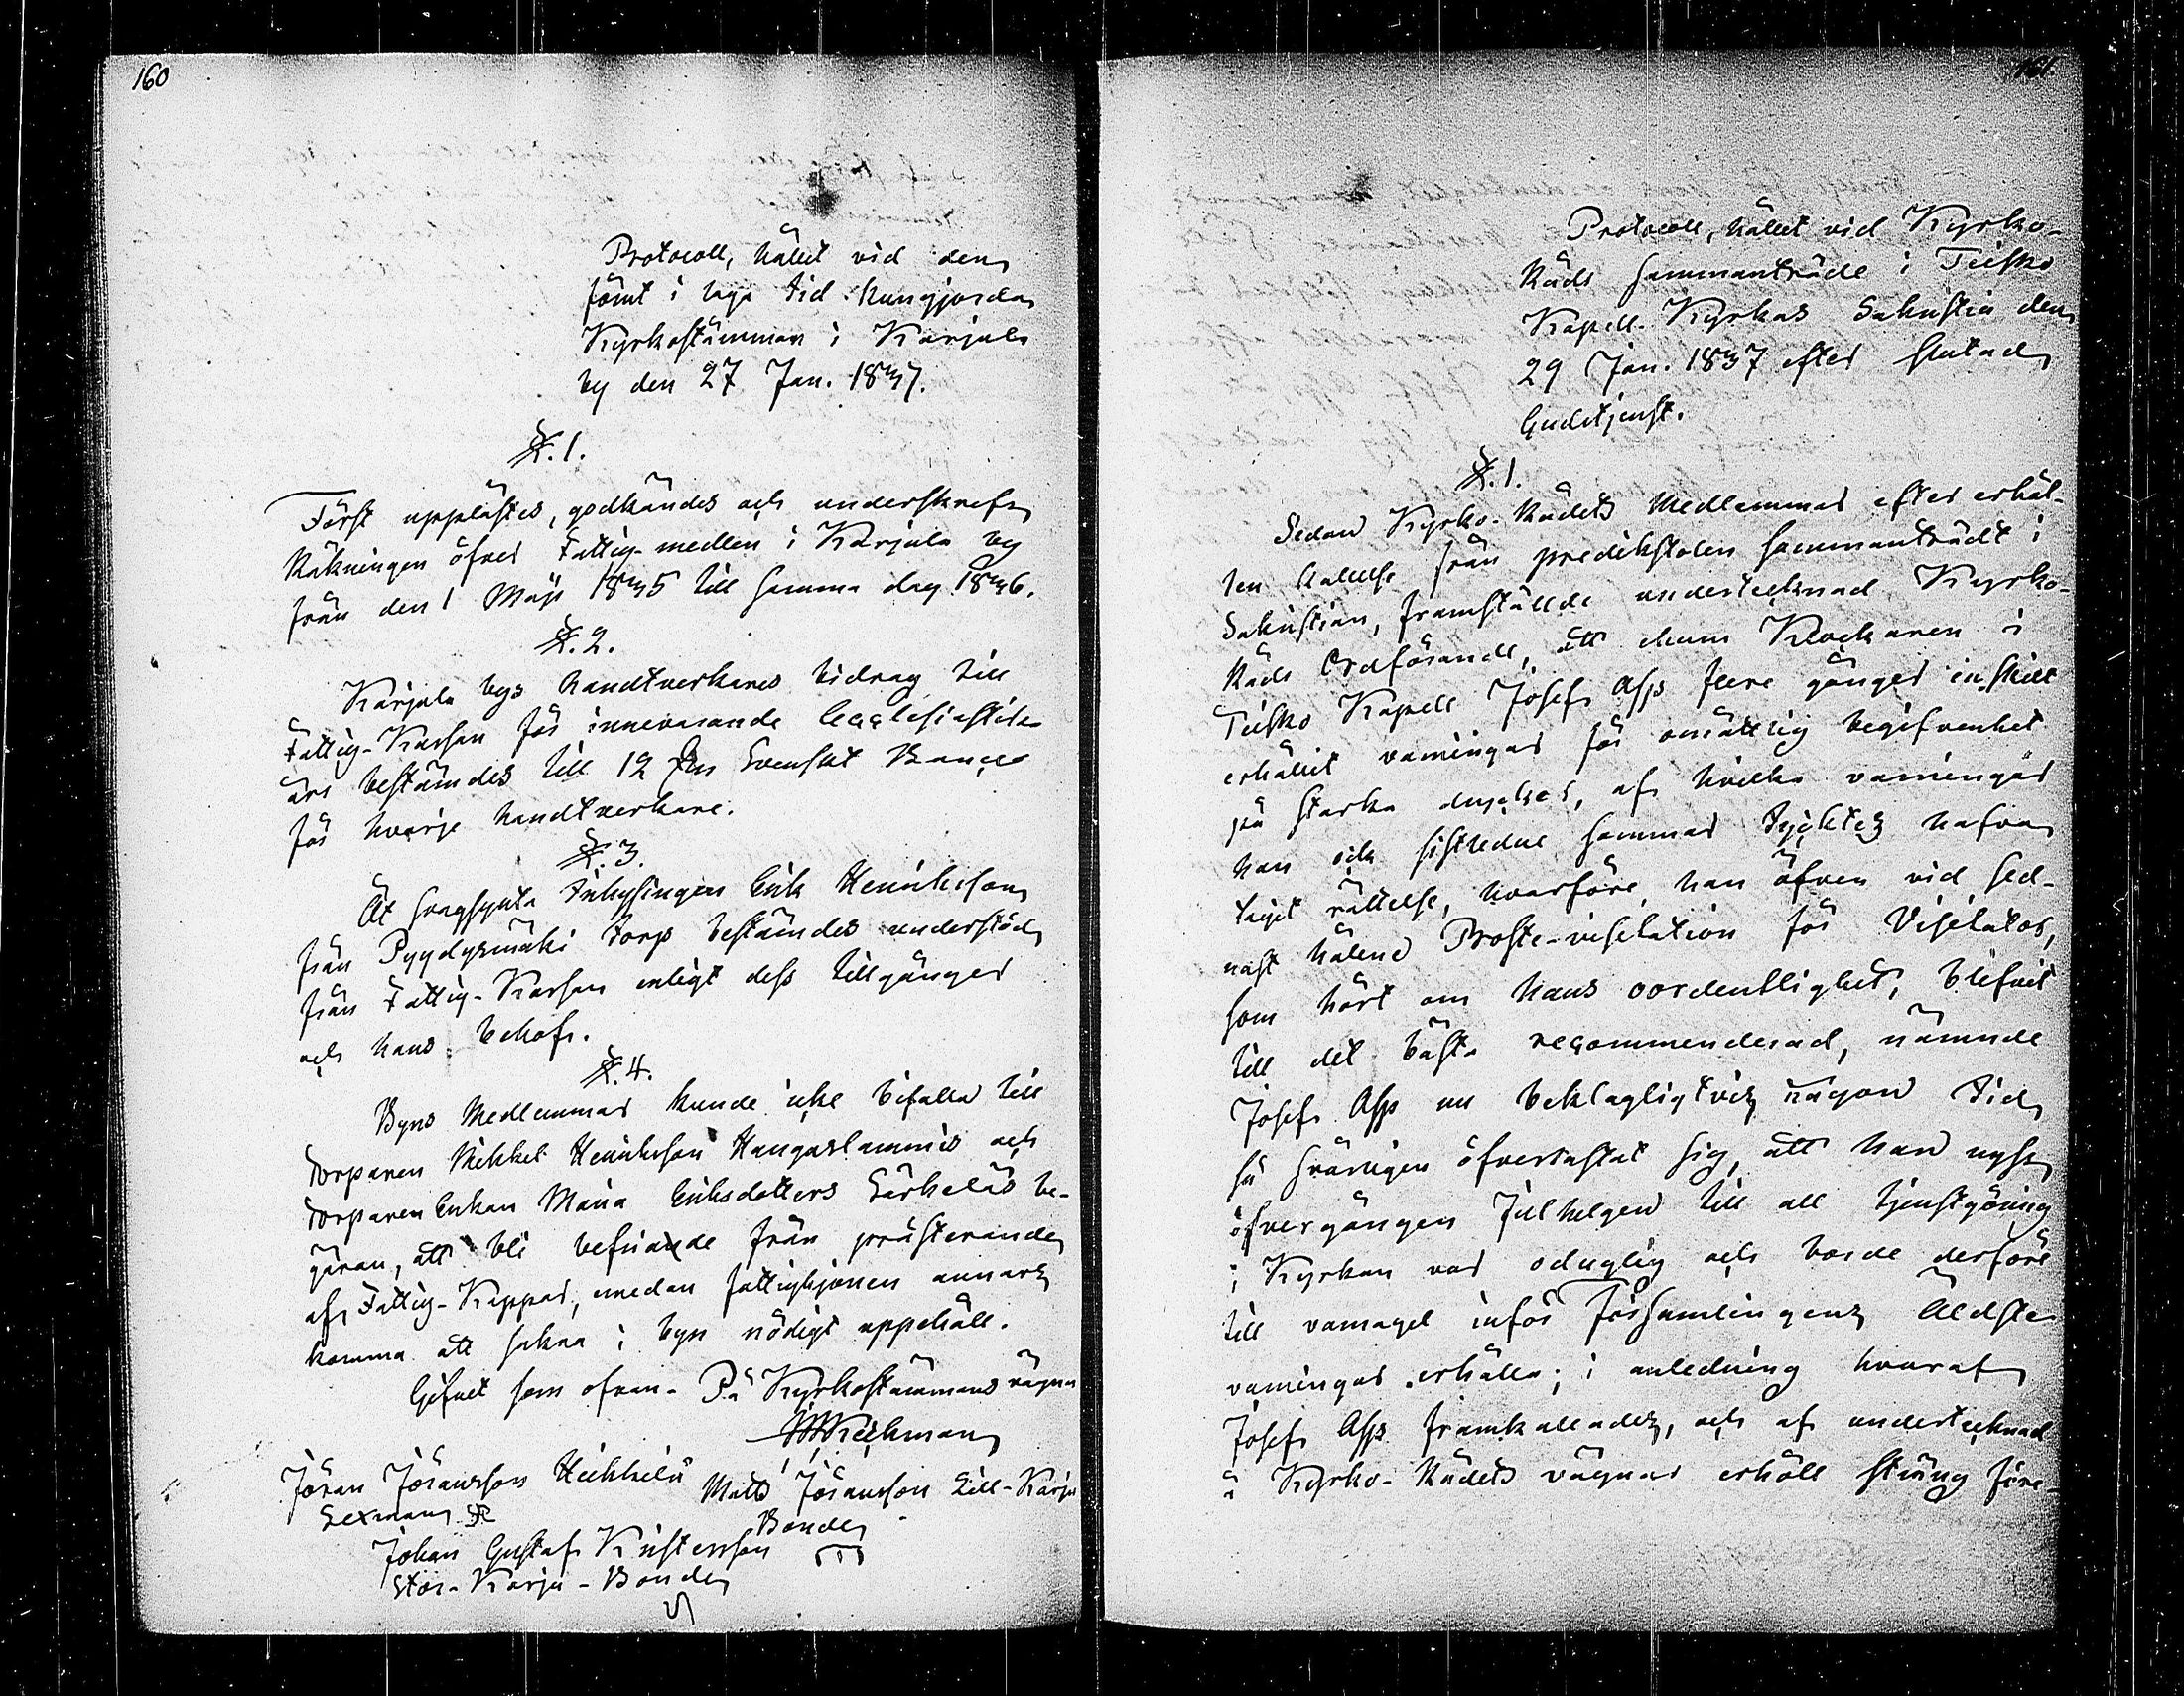 160
Protocoll, hållit vid den
jämt i laga tid kungjorda
Kyrkostämman i Karjula
by den 27 Jan. 1837.
§. 1.
Först upplästes, godkändes och underskrefs
Räkningen öfver Fattig-medlen i Karjula by
från den 1 Maji 1835 till samma dag 1836.
§. 2.
Karjula bys handtverkares bidrag till
Fattig-Kassan för innevarande Ecclesiastik
års bestämdes till 12 Svenskt Banco
för hvarje handtverkare.
§. 3.
Åt svagsynta Inhysingen Erik Henriksson
från Pyydysmäki torp bestämdes understöd
från Fattig-Kassan enligt dess tillgångar
och hans behof.
§. 4.
Byns Medlemmar kunde icke bifalla till
torparen Mikkel Henriksson Kangaslammis och
torpareEnkan Maria Eriksdotters Särkeläs be-
gäran, att bli befriade från præsterande
af Fattig-Kappar, medan fattighjonen annars
komma att sakna i byn nödigt uppehåll.
Gifvet som ofvan. På Kyrkostämmans vägnar
Jöran Jöransson Heikkilä
Sexman
Matts Jöransson Lill-Karju
Bonde
Johan Gustaf Kristersson
Stor-Karju-Bonde
161.
Protocoll, hållet vid Kyrko-
Råds sammanträde i Teisko
Kapell-Kyrkas Sakristia den
29 Jan. 1837 efter slutad
Gudstjenst.
§. 1.
Sedan Kyrko-Rådets Medlemmar efter erhål-
len kallelse från predikstolen sammanträdt i
Sakristian, framställde undertecknad Kyrko-
Råds Ordförande, att ehuru Klockaren i
Teisko Kapell Josef Asp flere gånger enskilt
erhållit varningar för omåttlig begifvenhet
på starka drycker, af hvilka varningar
han och sistledne sommar tycktes hafva
tagit rättelse, hvarföre han äfven vid sed-
nast hållne Proste-visitation för Visitator,
som hört om hans oordentlighet, blifvit
till det bästa recommenderad, nämnde
Josef Asp nu beklagligtvis någon tid
så svårligen öfverlastat sig, att han nyss
öfvergången Julhelgen till all tjenstgöring
i Kyrkan var oduglig och borde derföre
till varnagel inför Församlingens Äldste
varningar erhålla; i anledning hvaraf
Josef Asp framkallades, och af undertecknad
å Kyrko-Rådets vägnar erhöll sträng före-